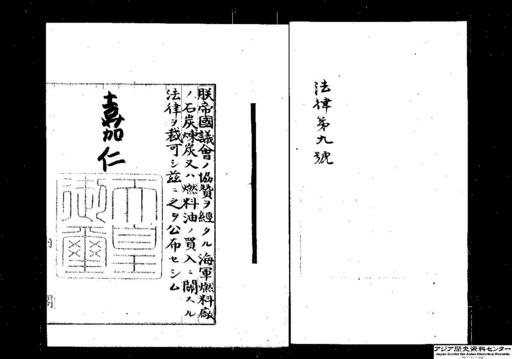 法律第九號
朕帝國議會ノ協贊ヲ經タル海軍燃料廠
ノ石炭煉炭又ハ燃料油ノ買入ニ關スル
法律ヲ裁可シ茲ニ之ヲ公布セシム
嘉仁
天皇
御璽
アジア歴史資料センター
Japan Center for Asian Historical Records